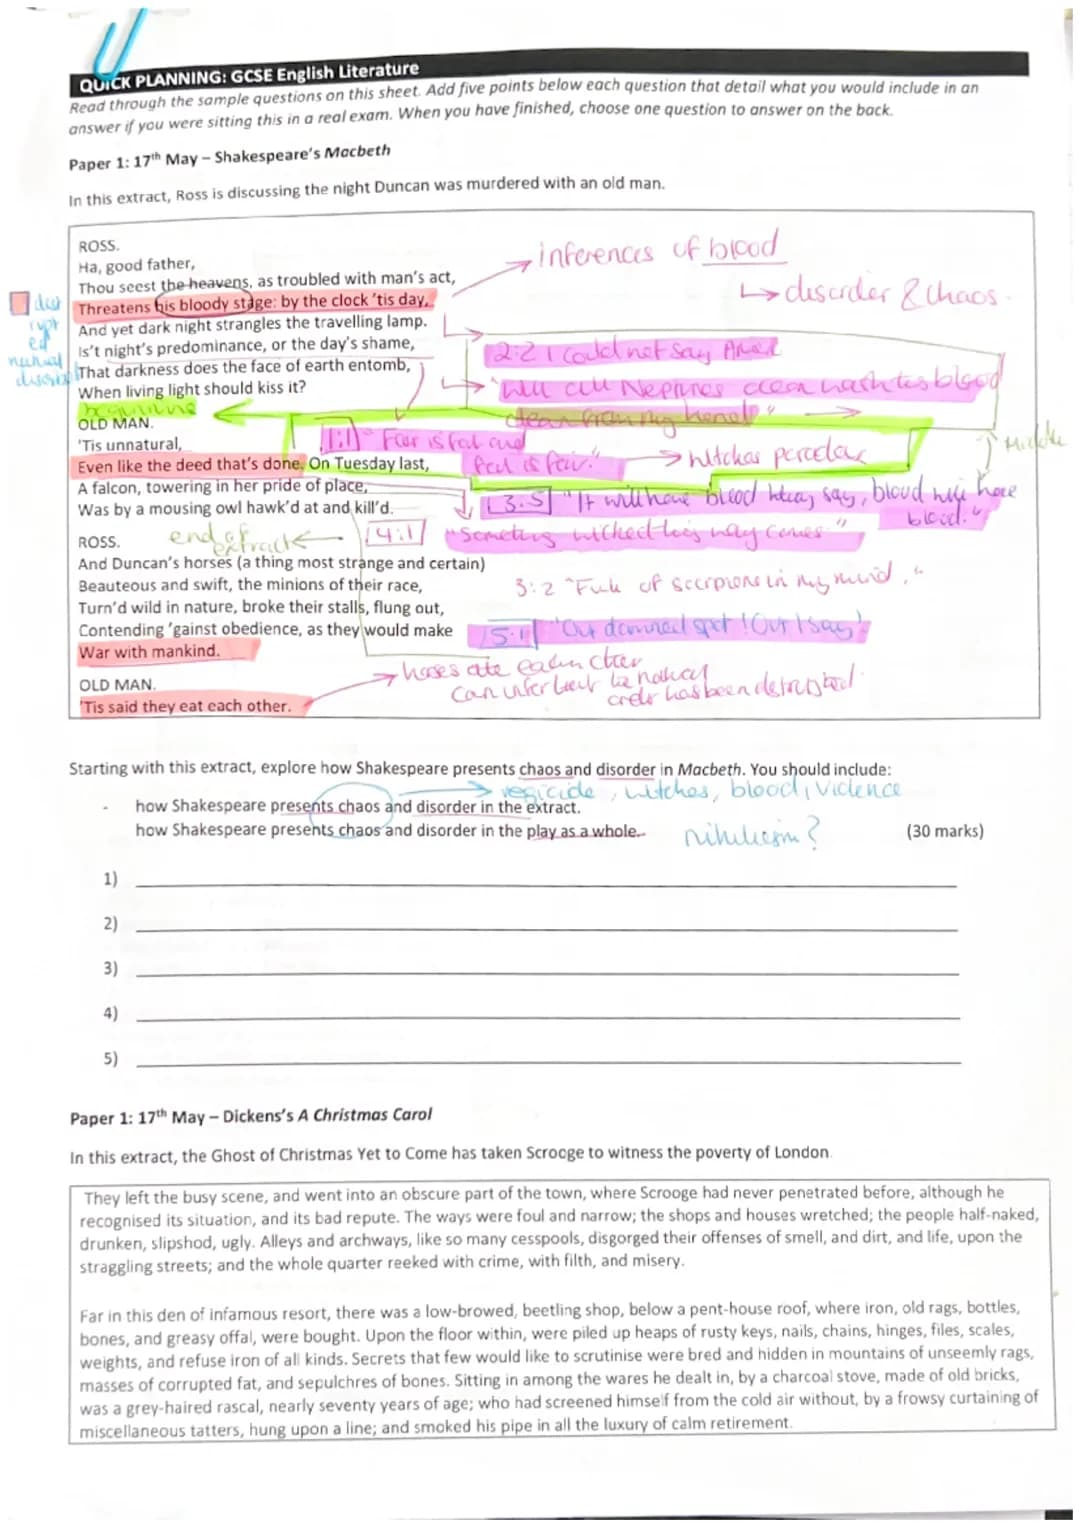 QUICK PLANNING: GCSE English Literature
Read through the sample questions on this sheet. Add five points below each question that detail what you would include in an
answer if you were sitting this in a real exam. When you have finished, choose one question to answer on the back.
Paper 1: 17th May – Shakespeare's Macbeth
In this extract, Ross is discussing the night Duncan was murdered with an old man.
ROSS.
Ha, good father,
Thou seest the heavens, as troubled with man's act,
Threatens his bloody stage: by the clock 'tis day,
And yet dark night strangles the travelling lamp.
Is't night's predominance, or the day's shame,
That darkness does the face of earth entomb,
When living light should kiss it?
OLD MAN.
'Tis unnatural,
Even like the deed that's done. On Tuesday last,
A falcon, towering in her pride of place,
Was by a mousing owl hawk'd at and kill'd.
ROSS.
And Duncan's horses (a thing most strange and certain)
Beauteous and swift, the minions of their race,
Turn'd wild in nature, broke their stalls, flung out,
Contending 'gainst obedience, as they would make
War with mankind.
OLD MAN.
'Tis said they eat each other.
inferences of blood
disorder & chaos.
2:2 I could not say Amen
"Will all Neptunes ocean wash this blood
clean from my hand"
1:1 "Fair is foul and
foul is fair."
witches
Middle
3.5 "It will have blood they say, blood will have
blood."
end of
extract
4:1 "Something wicked this way comes."
3:2 "Full of scorpions in my mind."
5.1 'Out damned spot! Out I say'
horses ate each other
can infer that the natural
order has been disrupted.
Starting with this extract, explore how Shakespeare presents chaos and disorder in Macbeth. You should include:
regicide, witches, blood, violence
- how Shakespeare presents chaos and disorder in the extract.
how Shakespeare presents chaos and disorder in the play as a whole.
nihilism?
(30 marks)
1)
2)
3)
4)
5)
Paper 1: 17th May – Dickens's A Christmas Carol
In this extract, the Ghost of Christmas Yet to Come has taken Scrooge to witness the poverty of London.
They left the busy scene, and went into an obscure part of the town, where Scrooge had never penetrated before, although he
recognised its situation, and its bad repute. The ways were foul and narrow; the shops and houses wretched; the people half-naked,
drunken, slipshod, ugly. Alleys and archways, like so many cesspools, disgorged their offenses of smell, and dirt, and life, upon the
straggling streets; and the whole quarter reeked with crime, with filth, and misery.
Far in this den of infamous resort, there was a low-browed, beetling shop, below a pent-house roof, where iron, old rags, bottles,
bones, and greasy offal, were bought. Upon the floor within, were piled up heaps of rusty keys, nails, chains, hinges, files, scales,
weights, and refuse iron of all kinds. Secrets that few would like to scrutinise were bred and hidden in mountains of unseemly rags,
masses of corrupted fat, and sepulchres of bones. Sitting in among the wares he dealt in, by a charcoal stove, made of old bricks,
was a grey-haired rascal, nearly seventy years of age; who had screened himself from the cold air without, by a frowsy curtaining of
miscellaneous tatters, hung upon a line; and smoked his pipe in all the luxury of calm retirement.